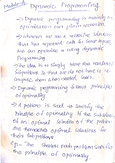 Module-4 Dynamic Programming
-> Dynamic programming is mainly an
optimization over plain recursion.
-> Wherever we see a recursive solution
that has repeated calls for same inputs,
we can optimize it using dynamic
Programming
-> The idea is to simply store the results of
subproblems, so that we do not have to re
compute them when needed later.
-> Dynamic programming is based principle
of optimality
-> A problem is said to satisfy the
Principle of optimality if the subsolutions
of an optimal solution of the problem
are themselves optimal solutions for
their subproblems.
eg:- The shortest path problem satisfies
the principle of optimality